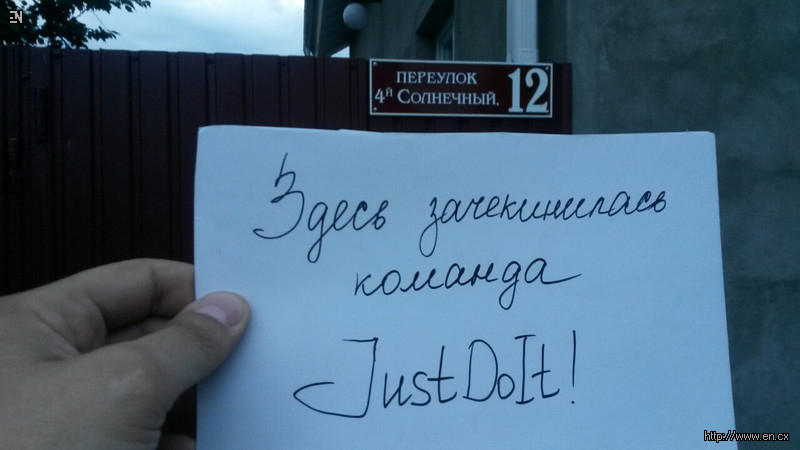 EN
ПЕРЕУЛОК
4й СОЛНЕЧНЫЙ, 12
Здесь зачекинилась
команда
JustDoIt!
http://www.en.cx